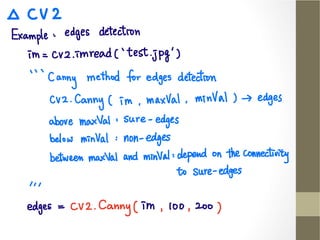 △ CV2
Example: edges detection
im = cv2.imread('test.jpg')
''' Canny method for edges detection
cv2.Canny ( im , maxVal , minVal ) → edges
above maxVal : sure-edges
below minVal : non-edges
between maxVal and minVal : depend on the connectivity
to sure-edges
'''
edges = cv2.Canny ( im , 100 , 200 )